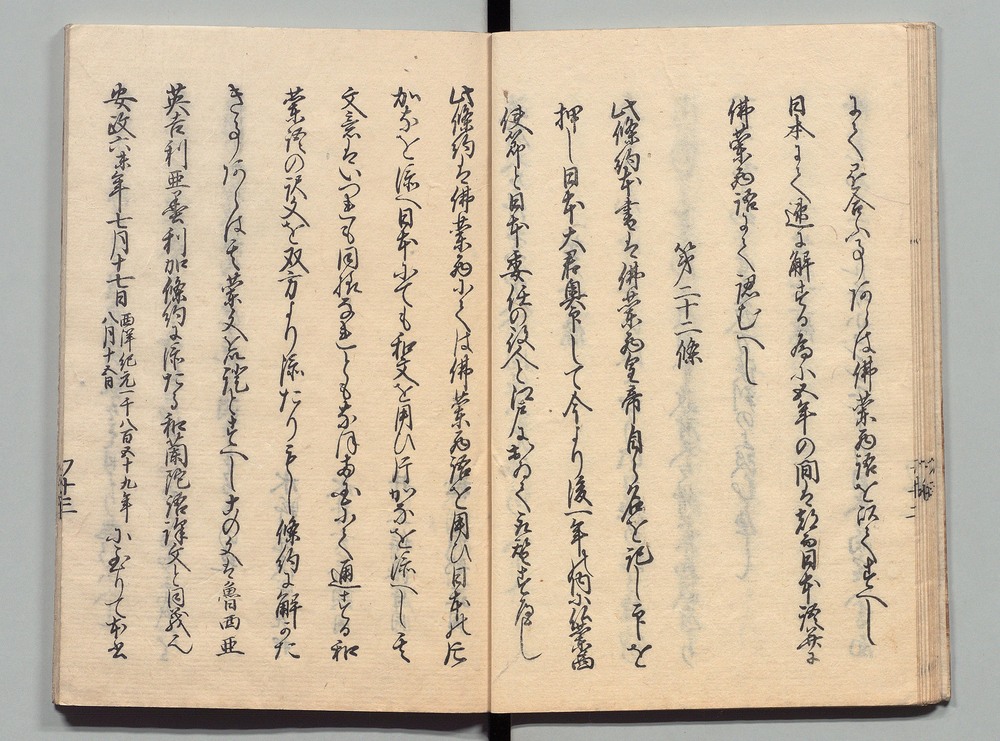 にて引合ふ事あらは佛蘭西語を以てすへし
日本にて速に解する為小五年の間は都而日本語并に
佛蘭西語にて認むへし
第二十二條
此條約本書は佛蘭西皇帝自ら名を記し印を
押し日本大君奧印して今より後一年の内小佛蘭西
使節と日本委任の役人と江戸において取替すへし
此條約は佛蘭西小ては佛蘭西語を用ひ日本は片
加なを添へ日本小ても和文を用ひ片加なを添へし其
文意はいつれも同様なれともなほ両国小て通する和
蘭語の訳文を双方より添たりもし條約に解かた
き事あらは其蘭文を以證とすへし右の文は魯西亜
英吉利亜墨利加條約に添たる和蘭陀語譯文と同義也
安政六未年七月十七日
西洋紀元一千八百五十九年
八月十五日
小至りて本書